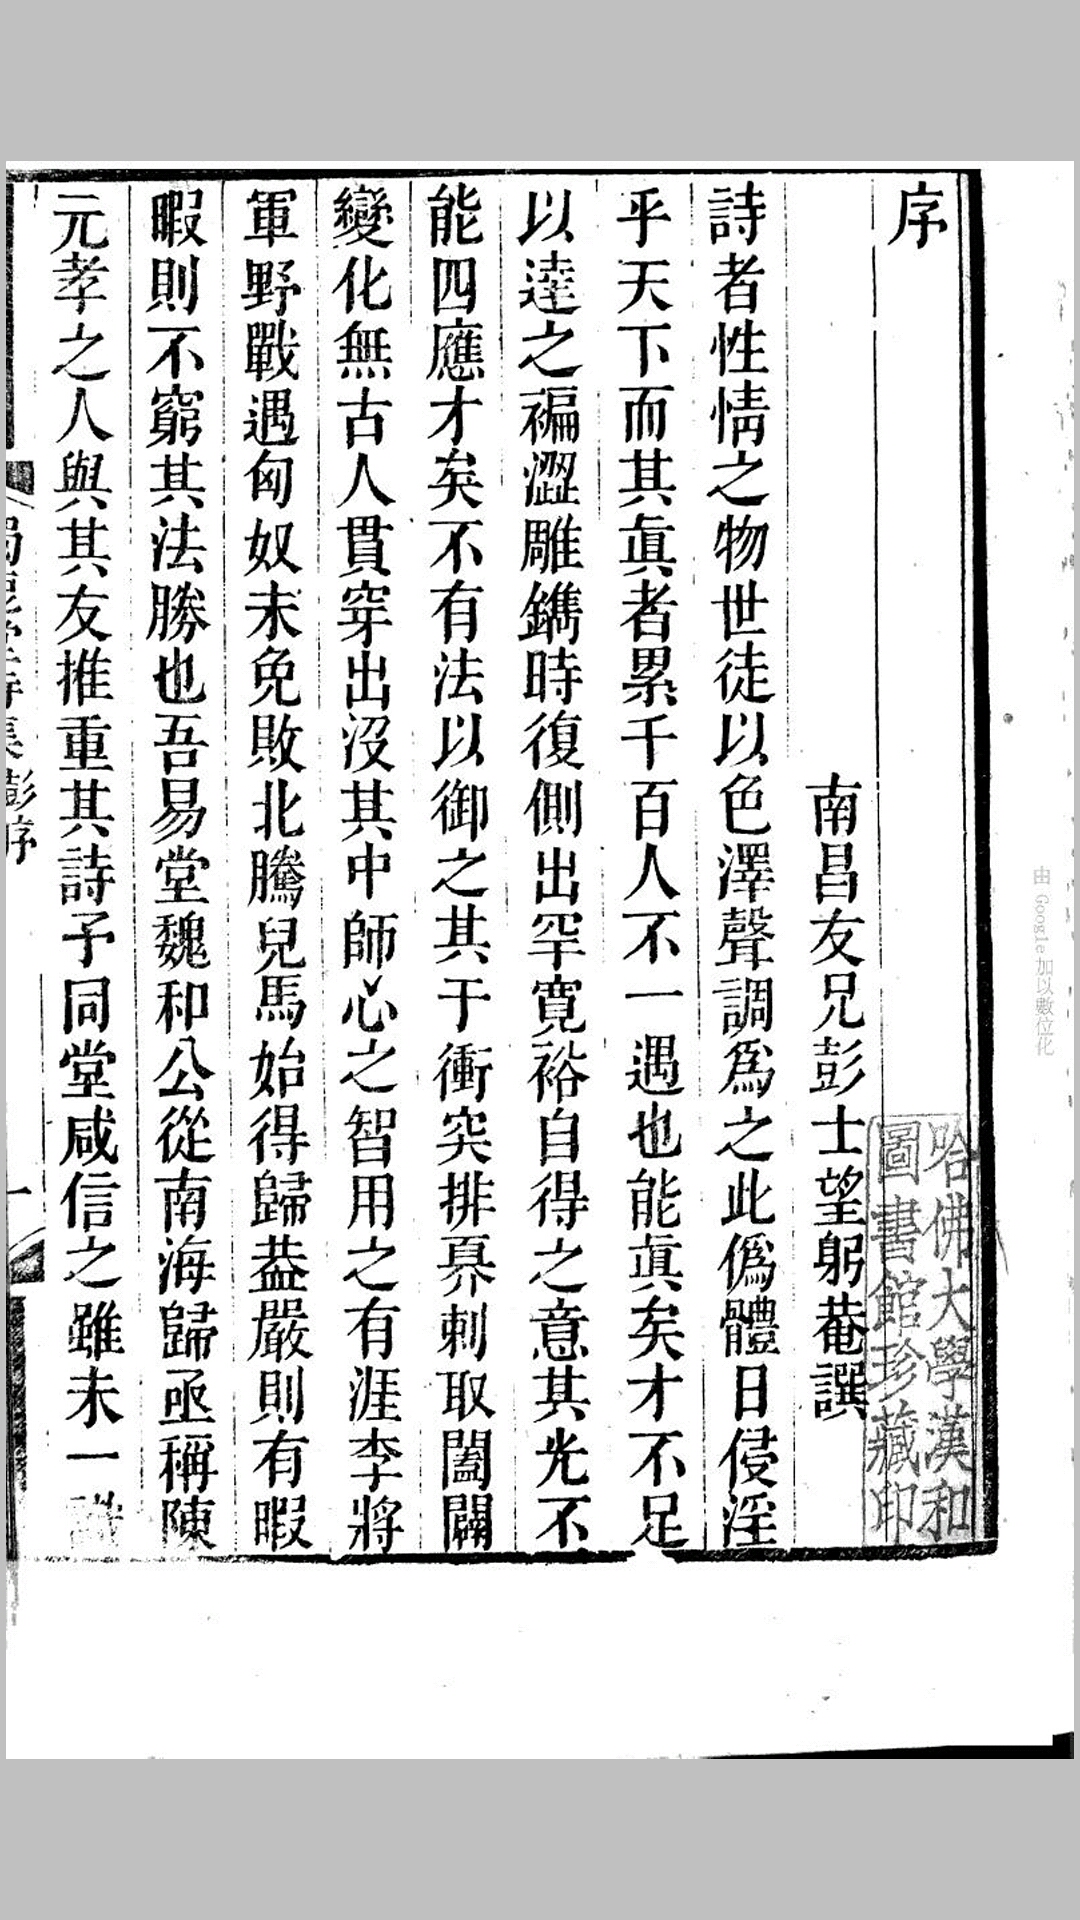 序
南昌友兄彭士望躬菴譔
詩者性情之物世徒以色澤聲調爲之此僞體日侵淫
乎天下而其眞者累千百人不一遇也能眞矣才不足
以達之褊澀雕鐫時復側出罕寬裕自得之意其光不
能四應才矣不有法以御之其于衝突排奡刺取闔闢
變化無古人貫穿出沒其中師心之智用之有涯李將
軍野戰遇匈奴未免敗北騰兒馬始得歸葢嚴則有暇
暇則不窮其法勝也吾易堂魏和公從南海歸亟稱陳
元孝之人與其友推重其詩予同堂咸信之雖未一
彭序
一
哈佛大學漢和
圖書館珍藏印
由 Google 加以數位化